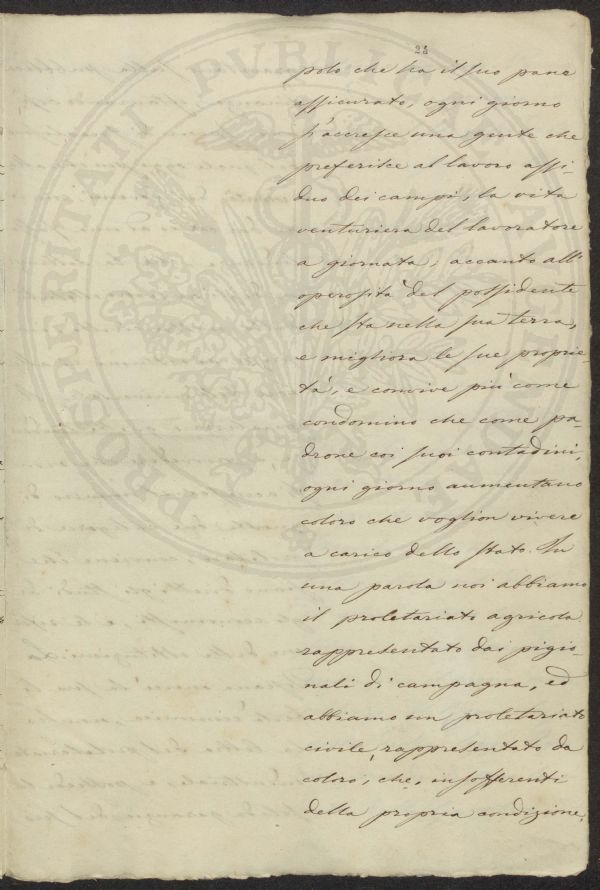 24
polo che ha il suo pane
assicurato, ogni giorno
s'accresce una gente che
preferisce al lavoro assi-
duo dei campi, la vita
venturiera del lavoratore
a giornata; accanto all'
operosità del possidente
che sta nella sua terra,
e migliora le sue proprie-
tà, e convive più come
condomino che come pa-
drone coi suoi contadini,
ogni giorno aumentano
coloro che voglion vivere
a carico dello stato. In
una parola noi abbiamo
il proletariato agricola
rappresentato dai pigio-
nali di campagna, ed
abbiamo un proletariato
civile, rappresentato da
coloro, che, insofferenti
della propria condizione,
PROSPERITATI PVBLICAE AVGENDAE